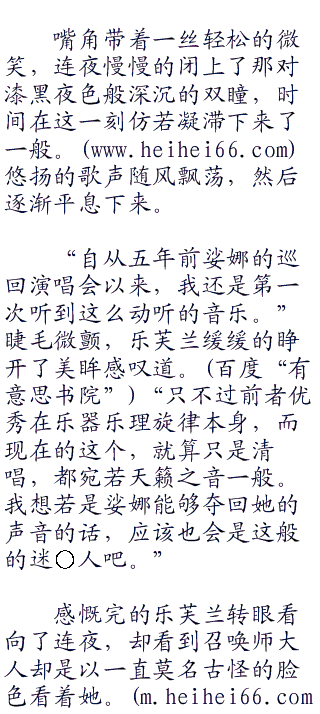 嘴角带着一丝轻松的微
笑，连夜慢慢的闭上了那对
漆黑夜色般深沉的双瞳，时
间在这一刻仿若凝滞下来了
一般。(www.heihei66.com)
悠扬的歌声随风飘荡，然后
逐渐平息下来。
“自从五年前娑娜的巡
回演唱会以来，我还是第一
次听到这么动听的音乐。”
睫毛微颤，乐芙兰缓缓的睁
开了美眸感叹道。(百度“有
意思书院”)“只不过前者优
秀在乐器乐理旋律本身，而
现在的这个，就算只是清
唱，都宛若天籁之音一般。
我想若是娑娜能够夺回她的
声音的话，应该也会是这般
的迷○人吧。”
感慨完的乐芙兰转眼看
向了连夜，却看到召唤师大
人却是以一直莫名古怪的脸
色看着她。(m.heihei66.com